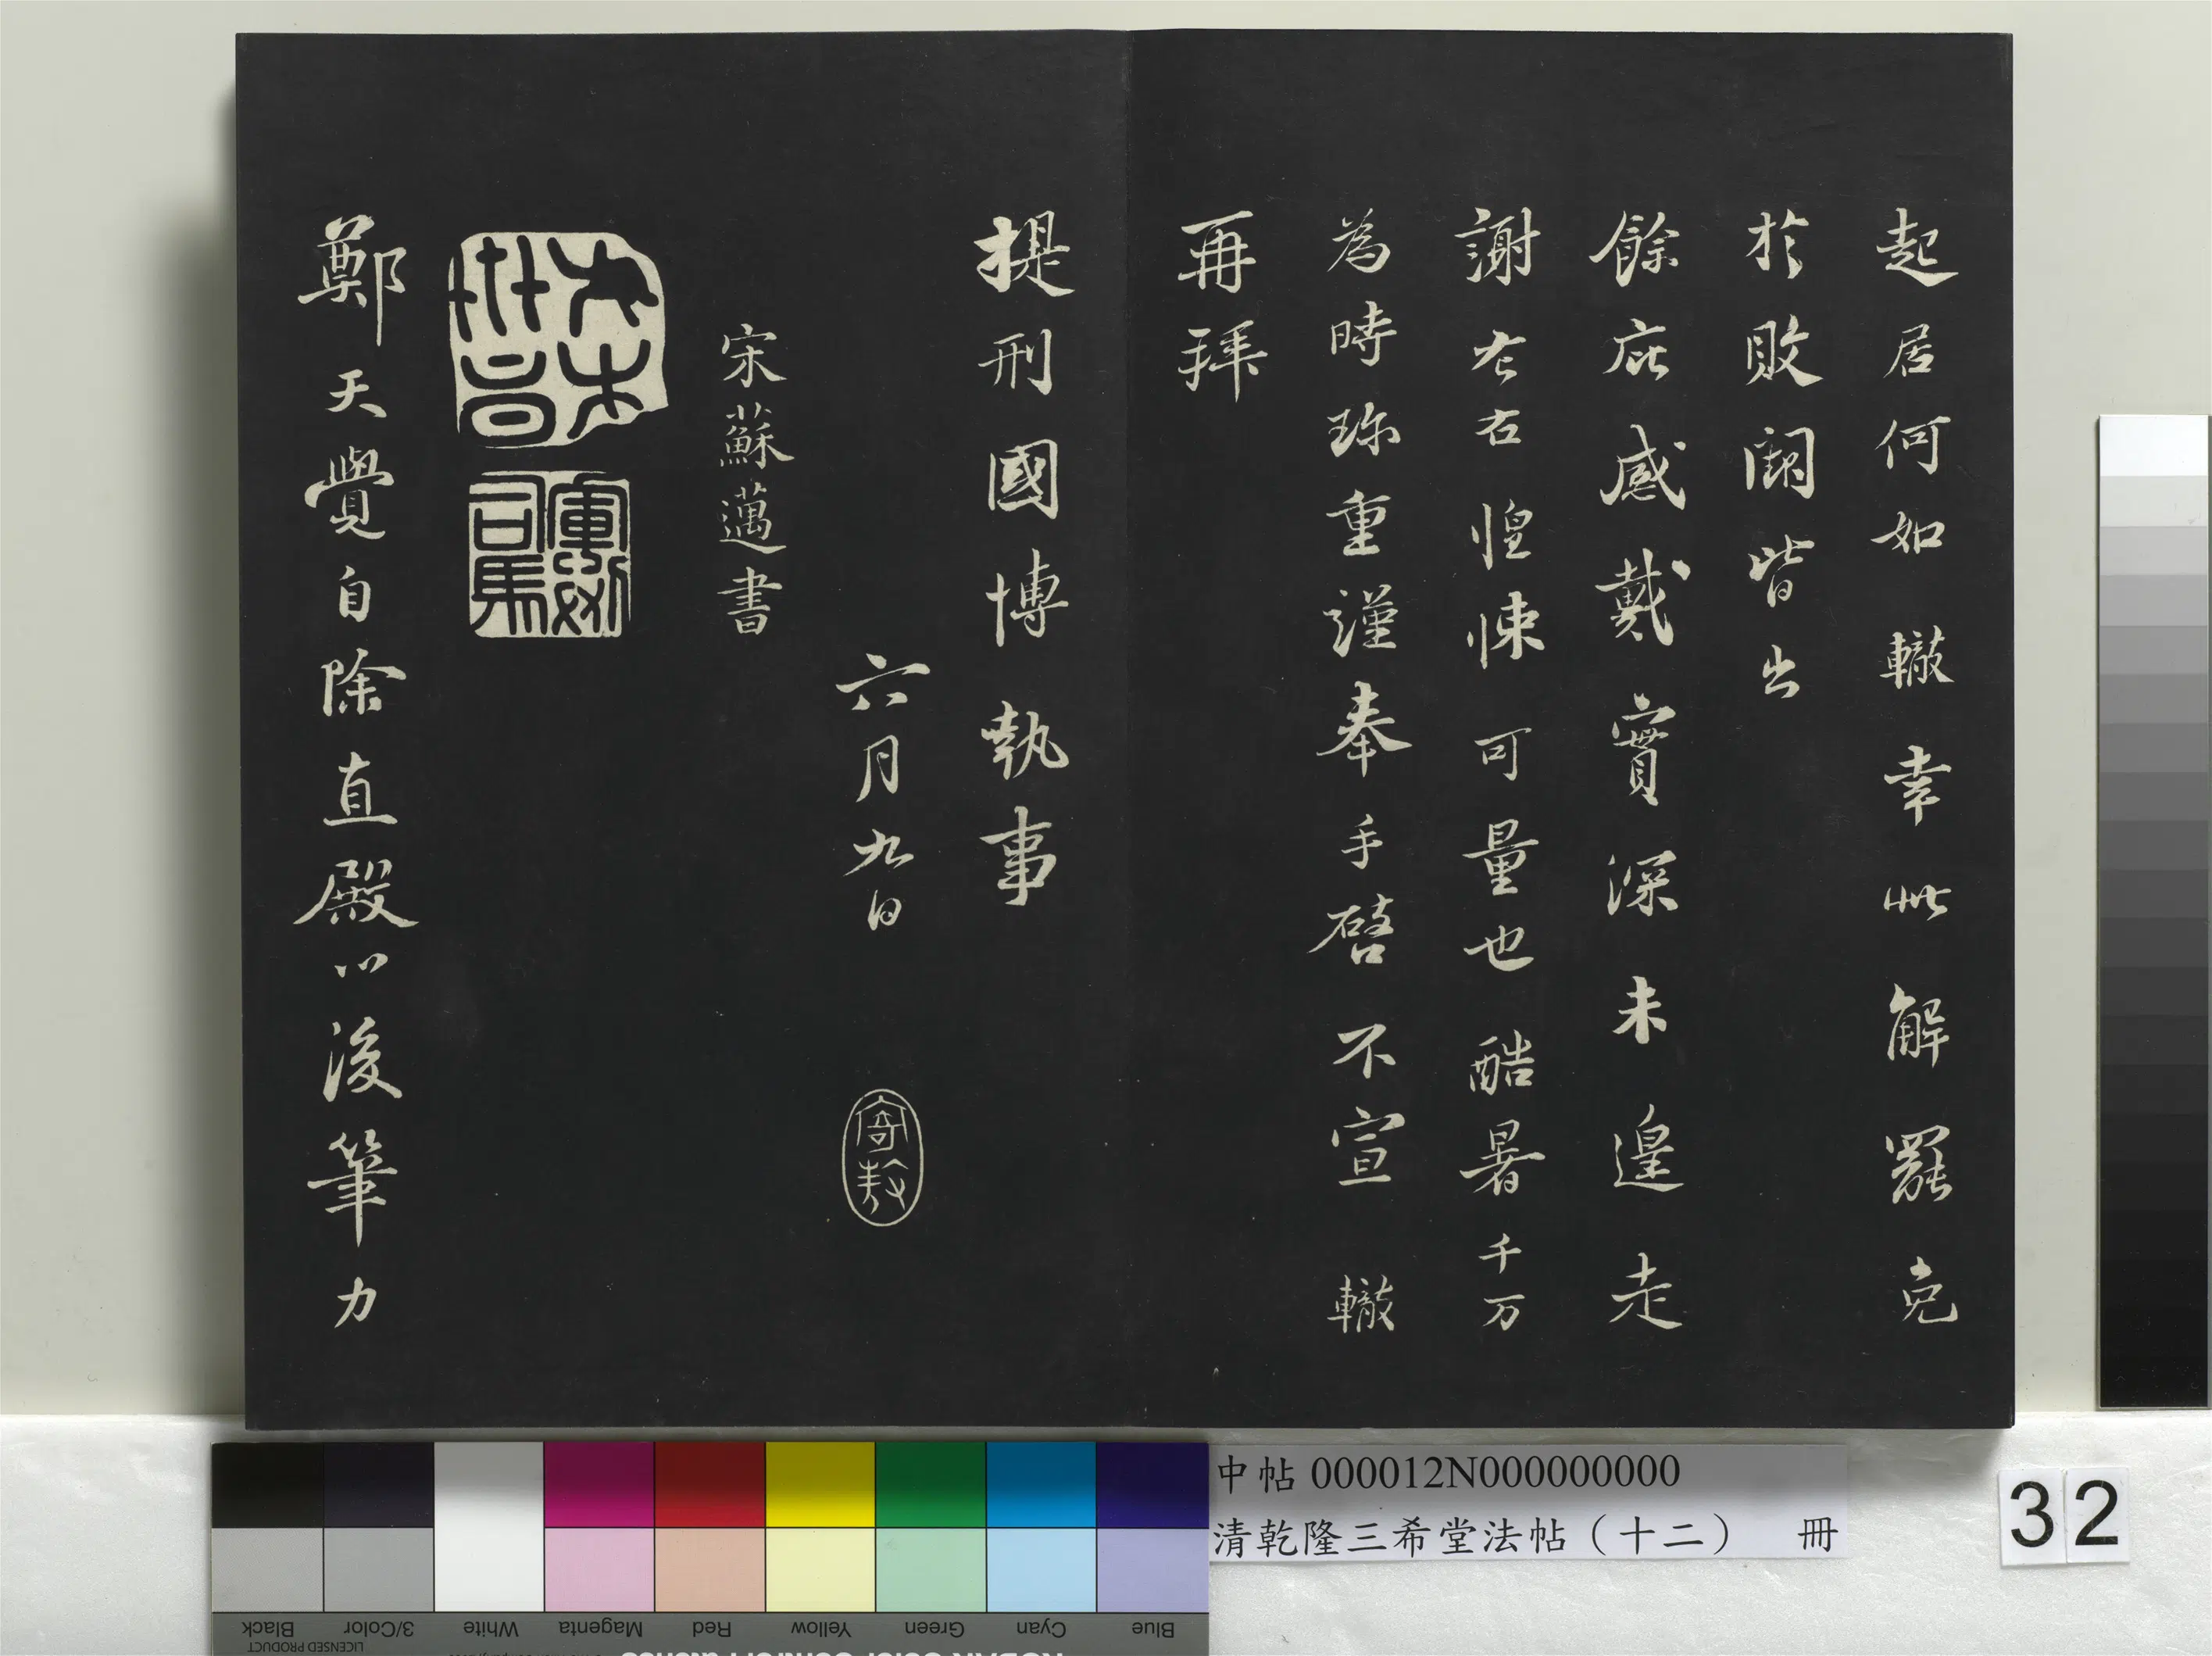 起居何如轍幸此解罷免
於敗闕皆出
餘庇感戴實深未遑走
謝左右惶悚可量也酷暑千万
為時珎重謹奉手啓不宣轍
再拜
提刑國博執事
六月九日
宋蘇邁書
司馬
鄭天覺自除直殿以後筆力
中帖 000012N000000000
清乾隆三希堂法帖（十二） 冊
32
Black
3/Color
White
Magenta
Red
Yellow
Green
Cyan
Blue
LICENSED PRODUCT